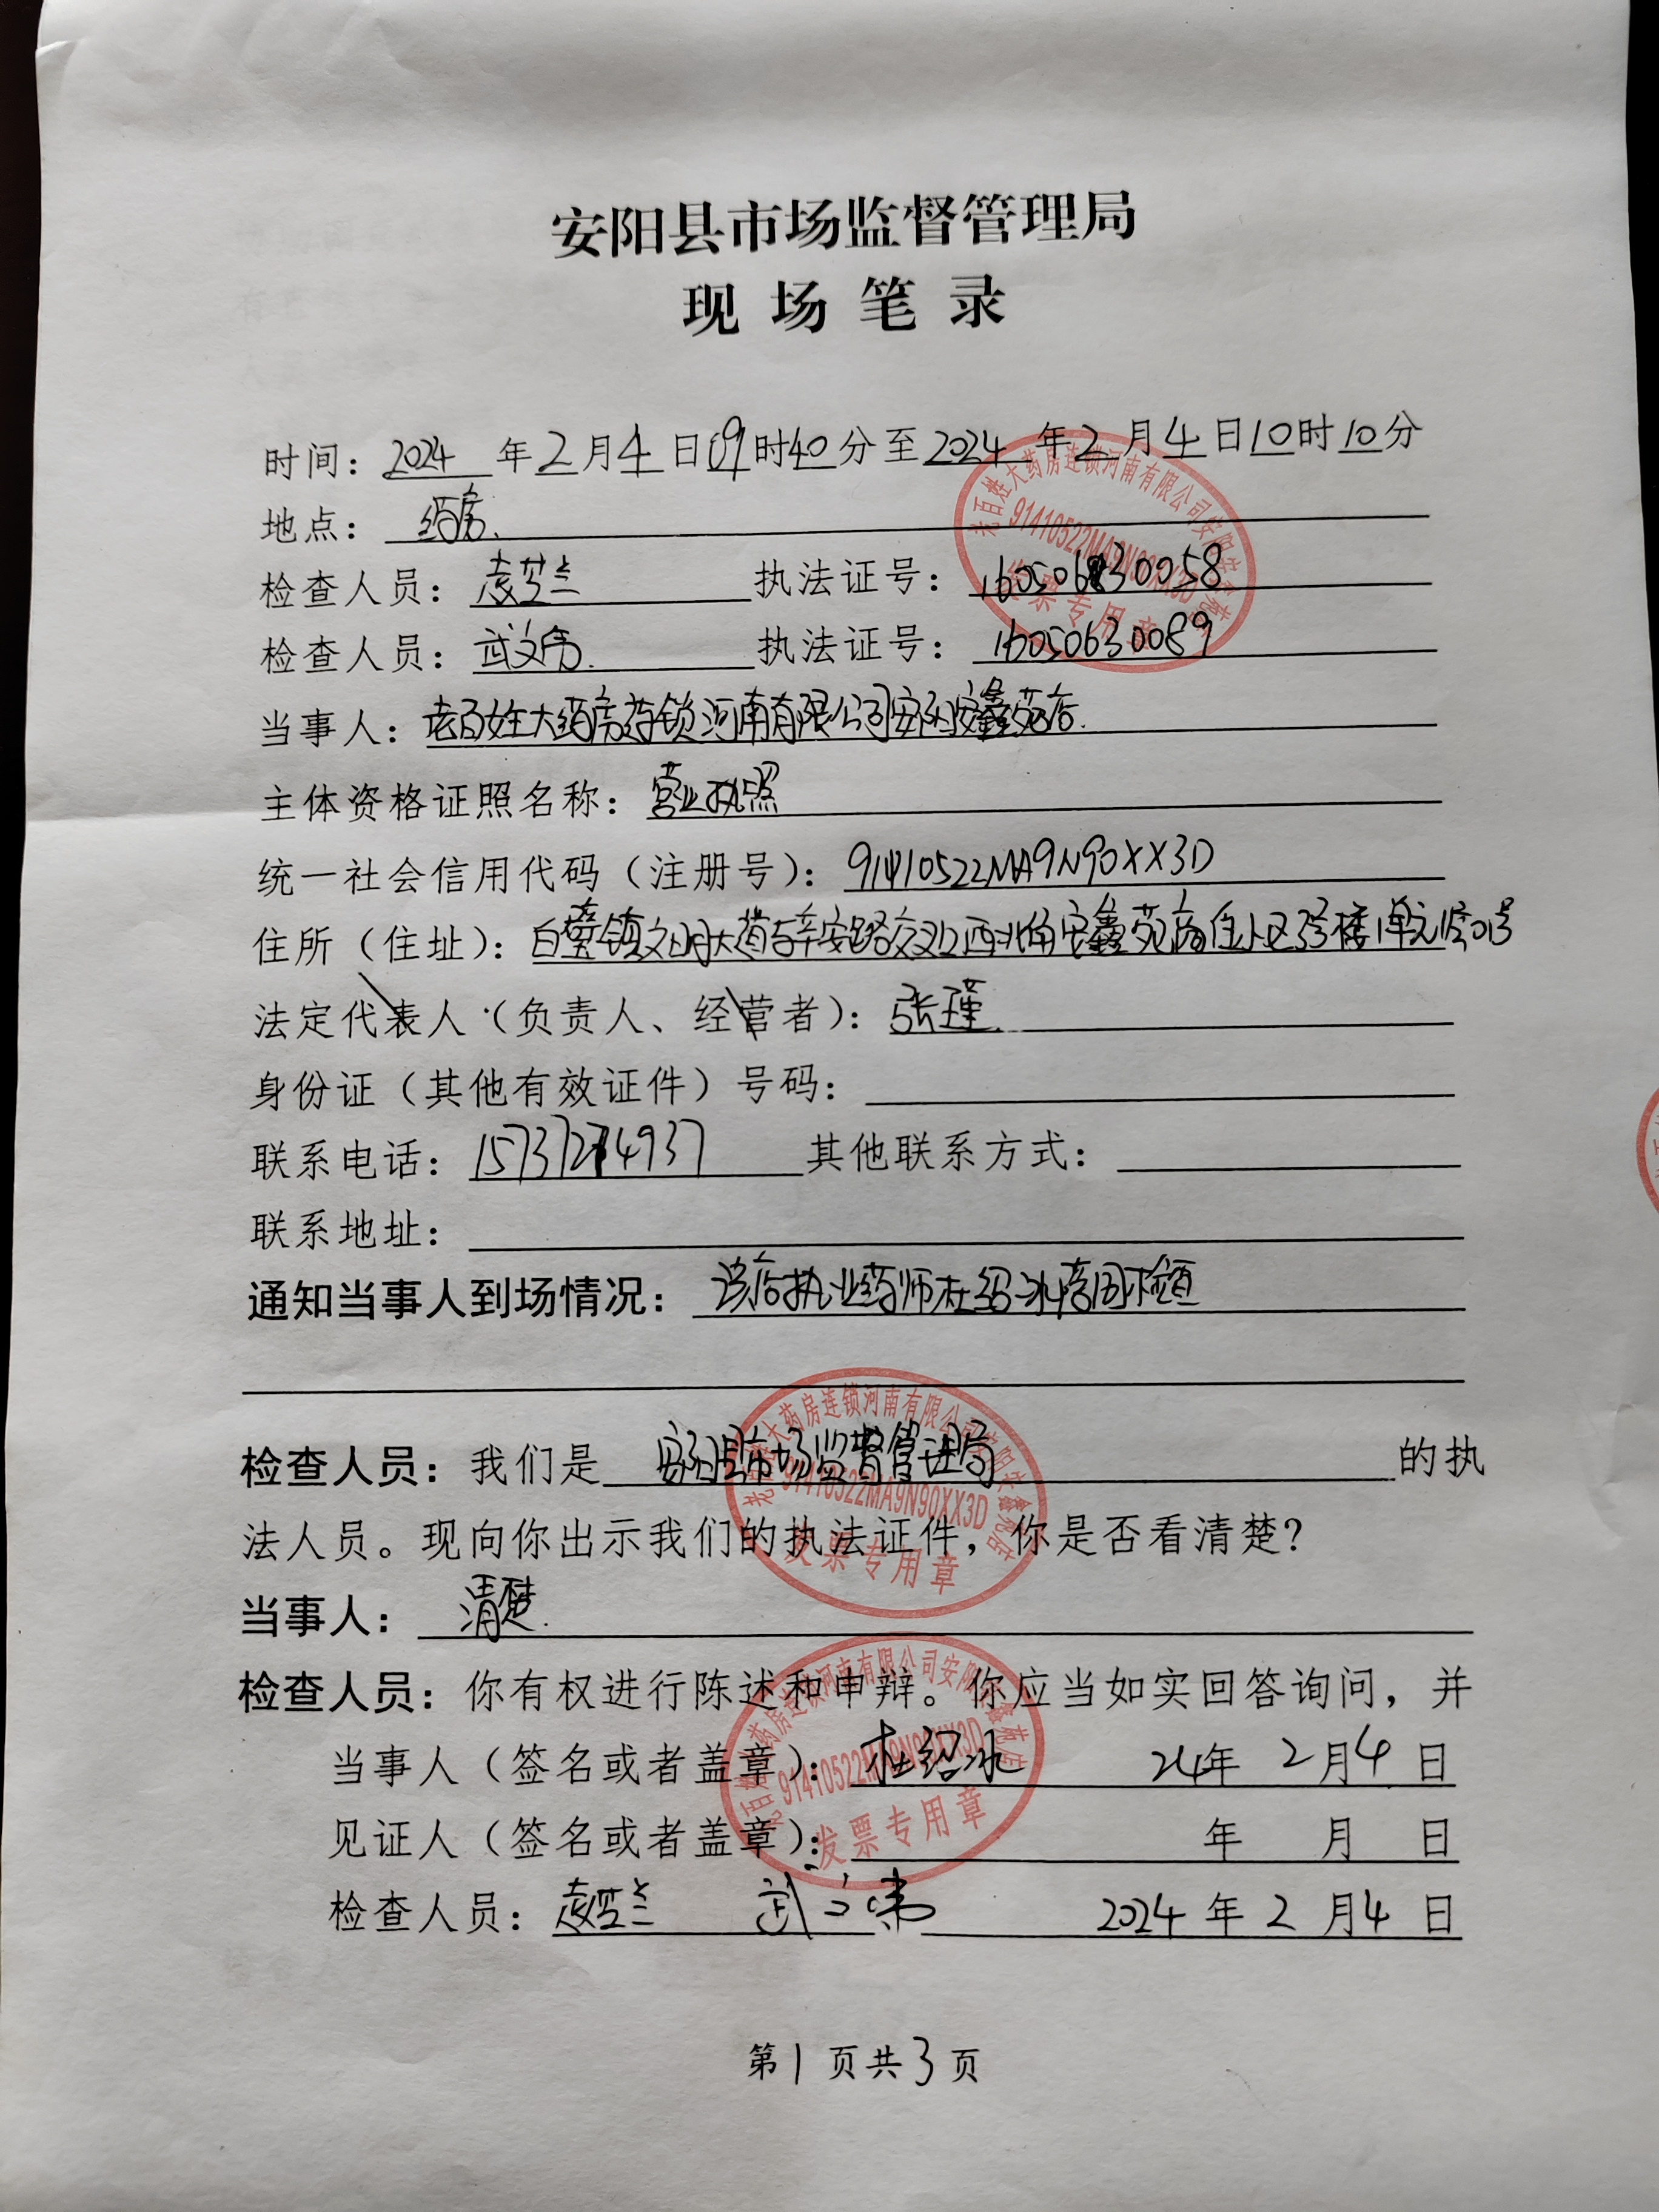 安阳县市场监督管理局
现场笔录
时间：2024年2月4日09时40分至2024年2月4日10时10分
地点：药房.
检查人员：芝兰 执法证号：16050630058
检查人员：武文伟. 执法证号：16050630089
当事人：老百姓大药房连锁河南有限公司安阳安鑫苑店.
主体资格证照名称：营业执照
统一社会信用代码（注册号）：91410522MA9N90XX3D
住所（住址）：白璧镇文明大道与辛安路交叉口西北角安鑫苑小区3号楼1单元1层01号
法定代表人（负责人、经营者）：张瑾.
身份证（其他有效证件）号码：
联系电话：15737214937 其他联系方式：
联系地址：
通知当事人到场情况：该店执业药师杜绍冰陪同检查
检查人员：我们是 安阳县市场监督管理局 的执
法人员。现向你出示我们的执法证件，你是否看清楚？
当事人：清楚.
检查人员：你有权进行陈述和申辩。你应当如实回答询问，并
当事人（签名或者盖章）：杜绍冰 24年2月4日
见证人（签名或者盖章）： 年 月 日
检查人员：芝兰 武文伟 2024年2月4日
第1页共3页
老百姓大药房连锁河南有限公司安阳安鑫苑店
91410522MA9N90XX3D
发票专用章
老百姓大药房连锁河南有限公司安阳安鑫苑店
91410522MA9N90XX3D
发票专用章
老百姓大药房连锁河南有限公司安阳安鑫苑店
91410522MA9N90XX3D
发票专用章